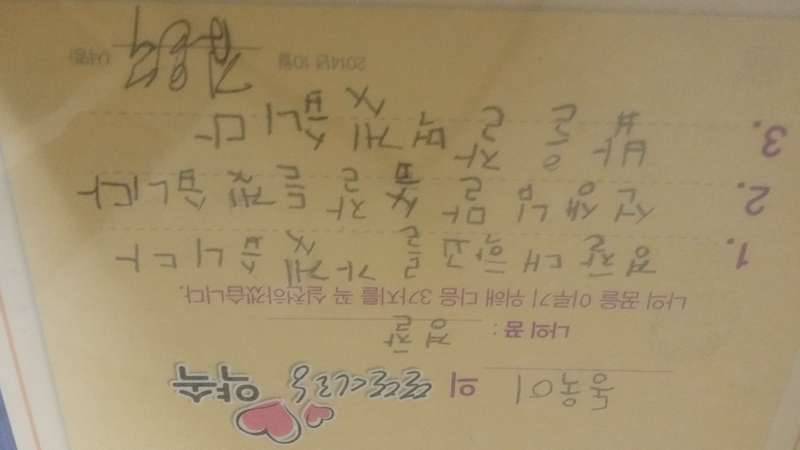 동욱이 의 약속
나의 꿈 : 경찰
나의 꿈을 이루기 위해 다음 3가지를 꼭 실천하겠습니다.
1. 경찰 대학교를 가겠습니다
2. 선생님 말씀 잘 듣겠습니다
3. 밥을 잘 먹겠습니다
2014년 10월 김동욱 (서명)